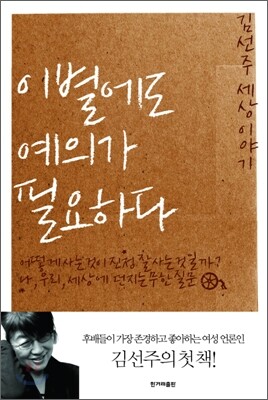 이별에도
예의가
필요하다
김선주 세상 이야기
어떻게 사는 것이 진정 잘 사는 것일까?
나, 우리, 세상에 던지는 무한 질문
후배들이 가장 존경하고 좋아하는 여성 언론인
김선주의 첫 책!
한겨레출판